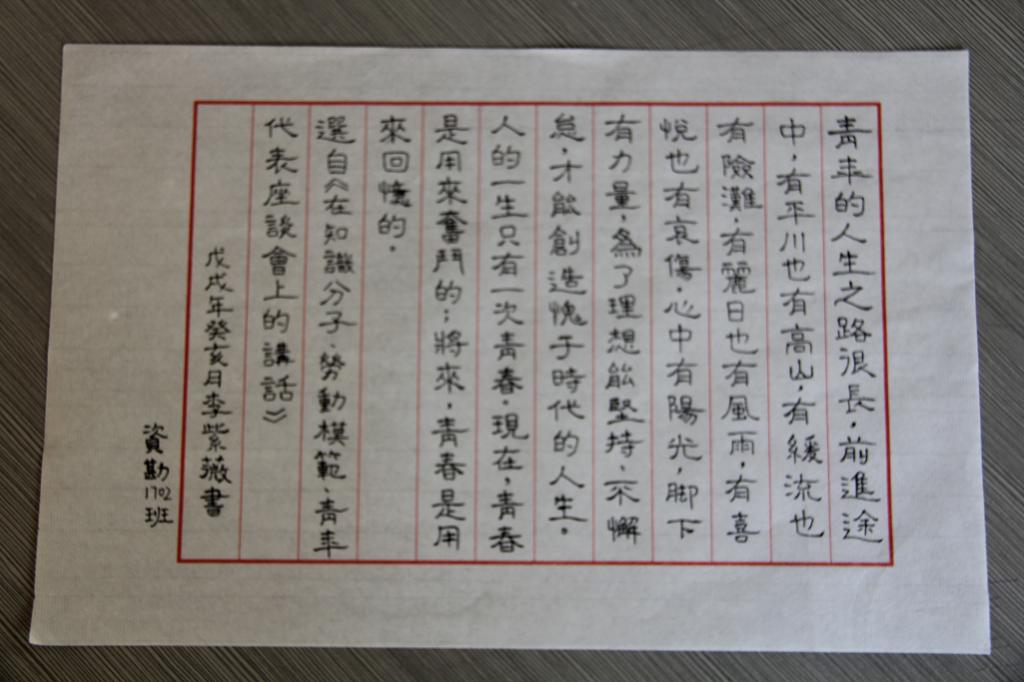 青年的人生之路很長，前進途
中，有平川也有高山，有緩流也
有險灘，有麗日也有風雨，有喜
悅也有哀傷。心中有陽光，脚下
有力量，為了理想能堅持、不懈
怠，才能創造愧于時代的人生。
人的一生只有一次青春。現在，青春
是用來奮鬥的；將來，青春是用
來回憶的。
選自《在知識分子、勞動模範、青年
代表座談會上的講話》
戊戌年癸亥月李紫薇書
資勘1702班